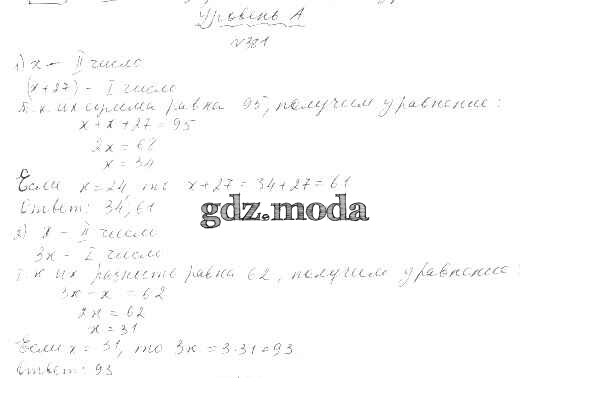 Уровень А
№381
1) x – II число
(x+27) – I число
Т.к. их сумма равна 95, получим уравнение:
x + x + 27 = 95
2x = 68
x = 34
Если x = 24, то x+27 = 34+27 = 61
Ответ: 34; 61
gdz.moda
2) x – II число
3x – I число
Т.к их разность равна 62, получим уравнение:
3x – x = 62
2x = 62
x = 31
Если x = 31, то 3x = 3·31 = 93
Ответ: 93